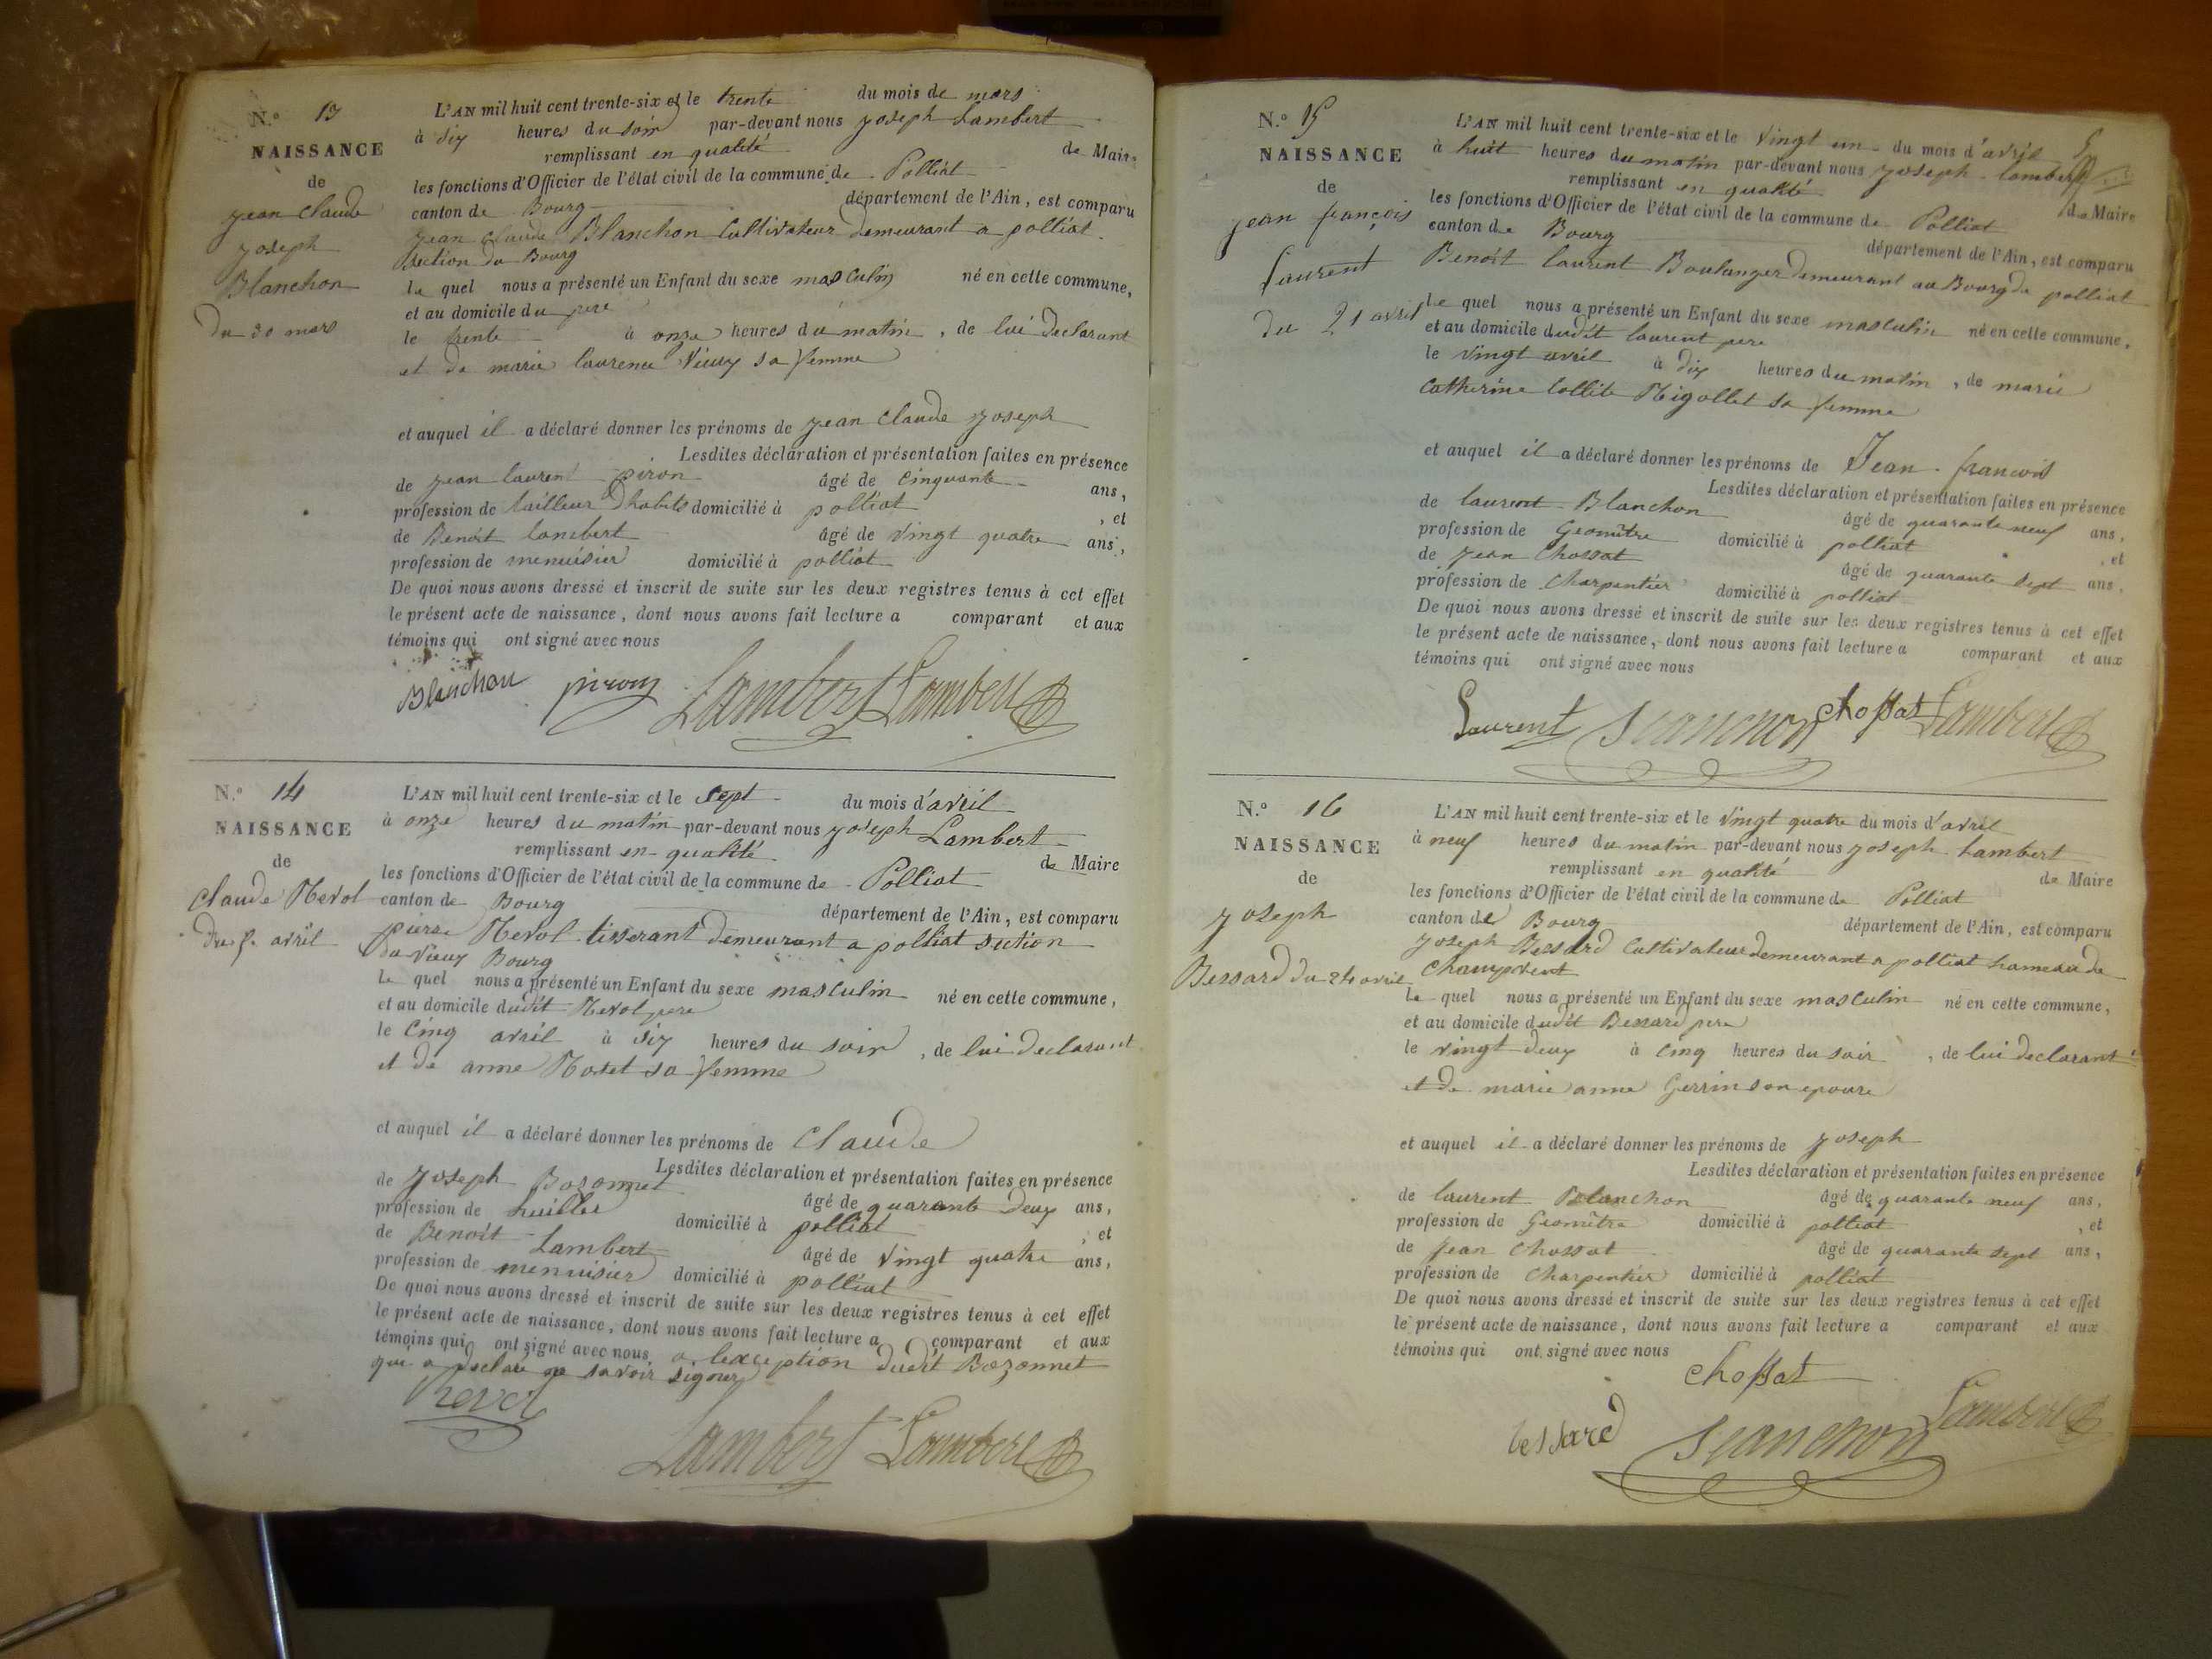 N.° 13
NAISSANCE
de
jean claude
joseph
Blanchon
du 30 mars
L'AN mil huit cent trente-six et le trente du mois de mars
à six heures du soir par-devant nous joseph Lambert
remplissant en qualité de Maire
les fonctions d'Officier de l'état civil de la commune de Polliat
canton de Bourg département de l'Ain, est comparu
jean claude Blanchon Cultivateur demeurant a polliat
section du Bourg
le quel nous a présenté un Enfant du sexe masculin né en cette commune,
et au domicile du pere
le trente à onze heures du matin, de lui declarant
et de marie laurence Vieux sa femme
et auquel il a déclaré donner les prénoms de jean claude joseph
Lesdites déclaration et présentation faites en présence
de jean laurent piron âgé de Cinquante ans,
profession de tailleur Dhabits domicilié à polliat, et
de Benoit lambert âgé de vingt quatre ans,
profession de menuisier domicilié à polliat
De quoi nous avons dressé et inscrit de suite sur les deux registres tenus à cet effet
le présent acte de naissance, dont nous avons fait lecture a comparant et aux
témoins qui ont signé avec nous
Blanchon piron Lambert Lambert
N.° 14
NAISSANCE
de
Claude Revol
du 7 avril
L'AN mil huit cent trente-six et le sept du mois d'avril
à onze heures du matin par-devant nous joseph Lambert
remplissant en qualité de Maire
les fonctions d'Officier de l'état civil de la commune de Polliat
canton de Bourg département de l'Ain, est comparu
pierre Revol tisserant demeurant a polliat section
du vieux Bourg
le quel nous a présenté un Enfant du sexe masculin né en cette commune,
et au domicile dudit Revol pere
le Cinq avril à six heures du soir, de lui declarant
et de anne Roset sa femme
et auquel il a déclaré donner les prénoms de Claude
Lesdites déclaration et présentation faites en présence
de joseph Bozonnet âgé de quarante deux ans,
profession de huillier domicilié à polliat, et
de Benoit Lambert âgé de vingt quatre ans,
profession de menuisier domicilié à polliat
De quoi nous avons dressé et inscrit de suite sur les deux registres tenus à cet effet
le présent acte de naissance, dont nous avons fait lecture a comparant et aux
témoins qui ont signé avec nous a lexception dudit Bozonnet
qui a declaré ne savoir signer
Revol Lambert Lambert
N.° 15
NAISSANCE
de
jean françois
Laurent
du 21 avril
L'AN mil huit cent trente-six et le vingt un du mois d'avril
à huit heures du matin par-devant nous joseph lambert
remplissant en qualité de Maire
les fonctions d'Officier de l'état civil de la commune de Polliat
canton de Bourg département de l'Ain, est comparu
Benoit laurent Boulanger demeurant au Bourg de polliat
le quel nous a présenté un Enfant du sexe masculin né en cette commune,
et au domicile dudit laurent pere
le vingt avril à dix heures du matin, de marie
Catherine Collite Rigollet sa femme
et auquel il a déclaré donner les prénoms de Jean françois
Lesdites déclaration et présentation faites en présence
de laurent Blanchon âgé de quarante neuf ans,
profession de Geomêtre domicilié à polliat, et
de jean Chossat âgé de quarante sept ans,
profession de Charpentier domicilié à polliat
De quoi nous avons dressé et inscrit de suite sur les deux registres tenus à cet effet
le présent acte de naissance, dont nous avons fait lecture a comparant et aux
témoins qui ont signé avec nous
Laurent Blanchon chossat Lambert
N.° 16
NAISSANCE
de
joseph
Bessard du 24 avril
L'AN mil huit cent trente-six et le vingt quatre du mois d'avril
à neuf heures du matin par-devant nous joseph Lambert
remplissant en qualité de Maire
les fonctions d'Officier de l'état civil de la commune de Polliat
canton de Bourg département de l'Ain, est comparu
joseph Bessard Cultivateur demeurant a polliat hameau de
Champvent
le quel nous a présenté un Enfant du sexe masculin né en cette commune,
et au domicile dudit Bessard pere
le vingt deux à cinq heures du soir, de lui declarant
et de marie anne Gerrin son epouse
et auquel il a déclaré donner les prénoms de joseph
Lesdites déclaration et présentation faites en présence
de laurent Blanchon âgé de quarante neuf ans,
profession de Geomêtre domicilié à polliat, et
de jean Chossat âgé de quarante sept ans,
profession de Charpentier domicilié à polliat
De quoi nous avons dressé et inscrit de suite sur les deux registres tenus à cet effet
le présent acte de naissance, dont nous avons fait lecture a comparant et aux
témoins qui ont signé avec nous
chossat
bessard Blanchon Lambert